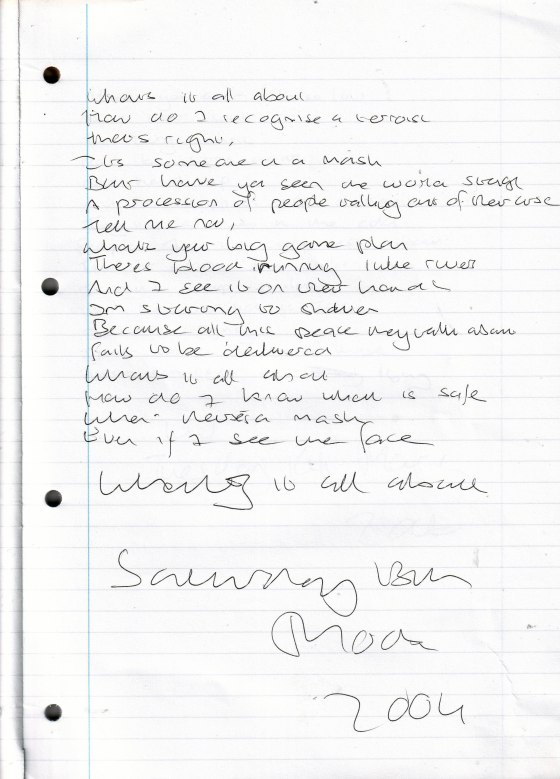 Whats it all about
How do I recognise a terrorist
thats right,
Its someone in a mask
But have you seen the world strange
A procession of people walking out of their
Tell me now,
whats your big game plan
Theres blood running like river
And I see it on their hands
Im starting to shiver
Because all this peace they talk about
fails to be delivered
Whats it all about
How do I know what is safe
When theres a mask
Even if I see the face
Whats it all about
Saturday 13th
March
2004